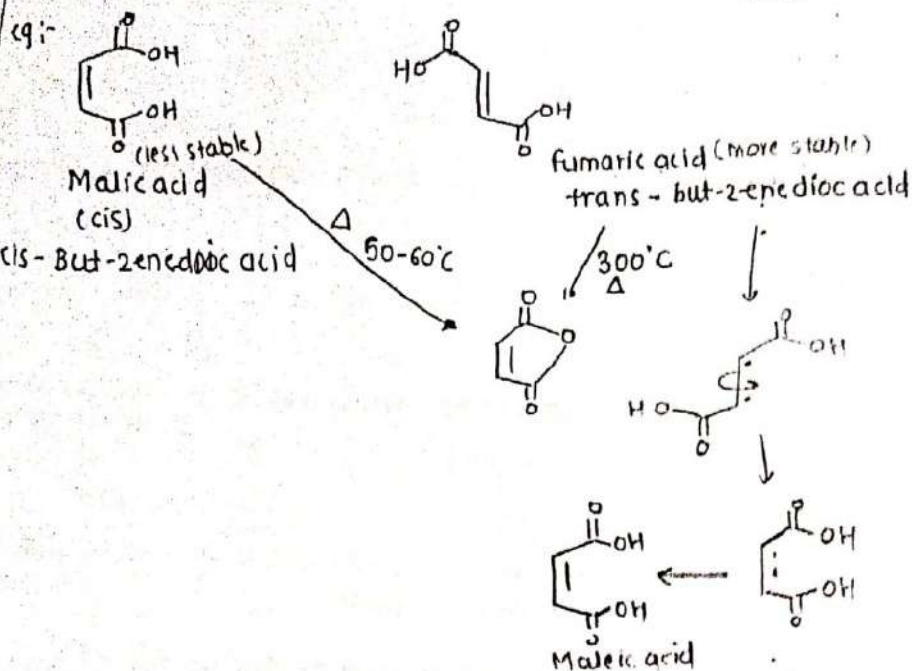 eg:-
O
OH
OH
O
(less stable)
Malic acid
(cis)
cis - But-2enedioc acid
O
HO
OH
O
fumaric acid (more stable)
trans - but-2-enedioc acid
Δ
50-60°C
300°C
Δ
O
O
O
O
OH
HO
O
O
OH
OH
O
Maleic acid
O
OH
OH
O